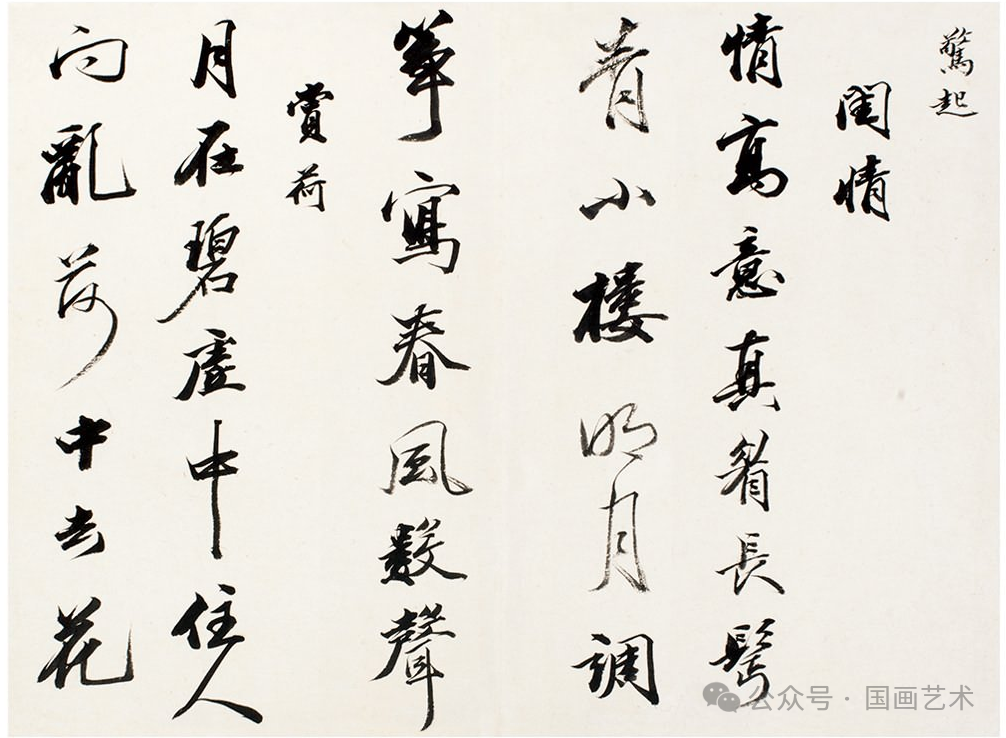 驚起
閨情
情高意真眉長鬢
青小樓明月調
箏寫春風數聲
賞荷
月在碧虛中住人
向亂荷中去花
公众号·国画艺术